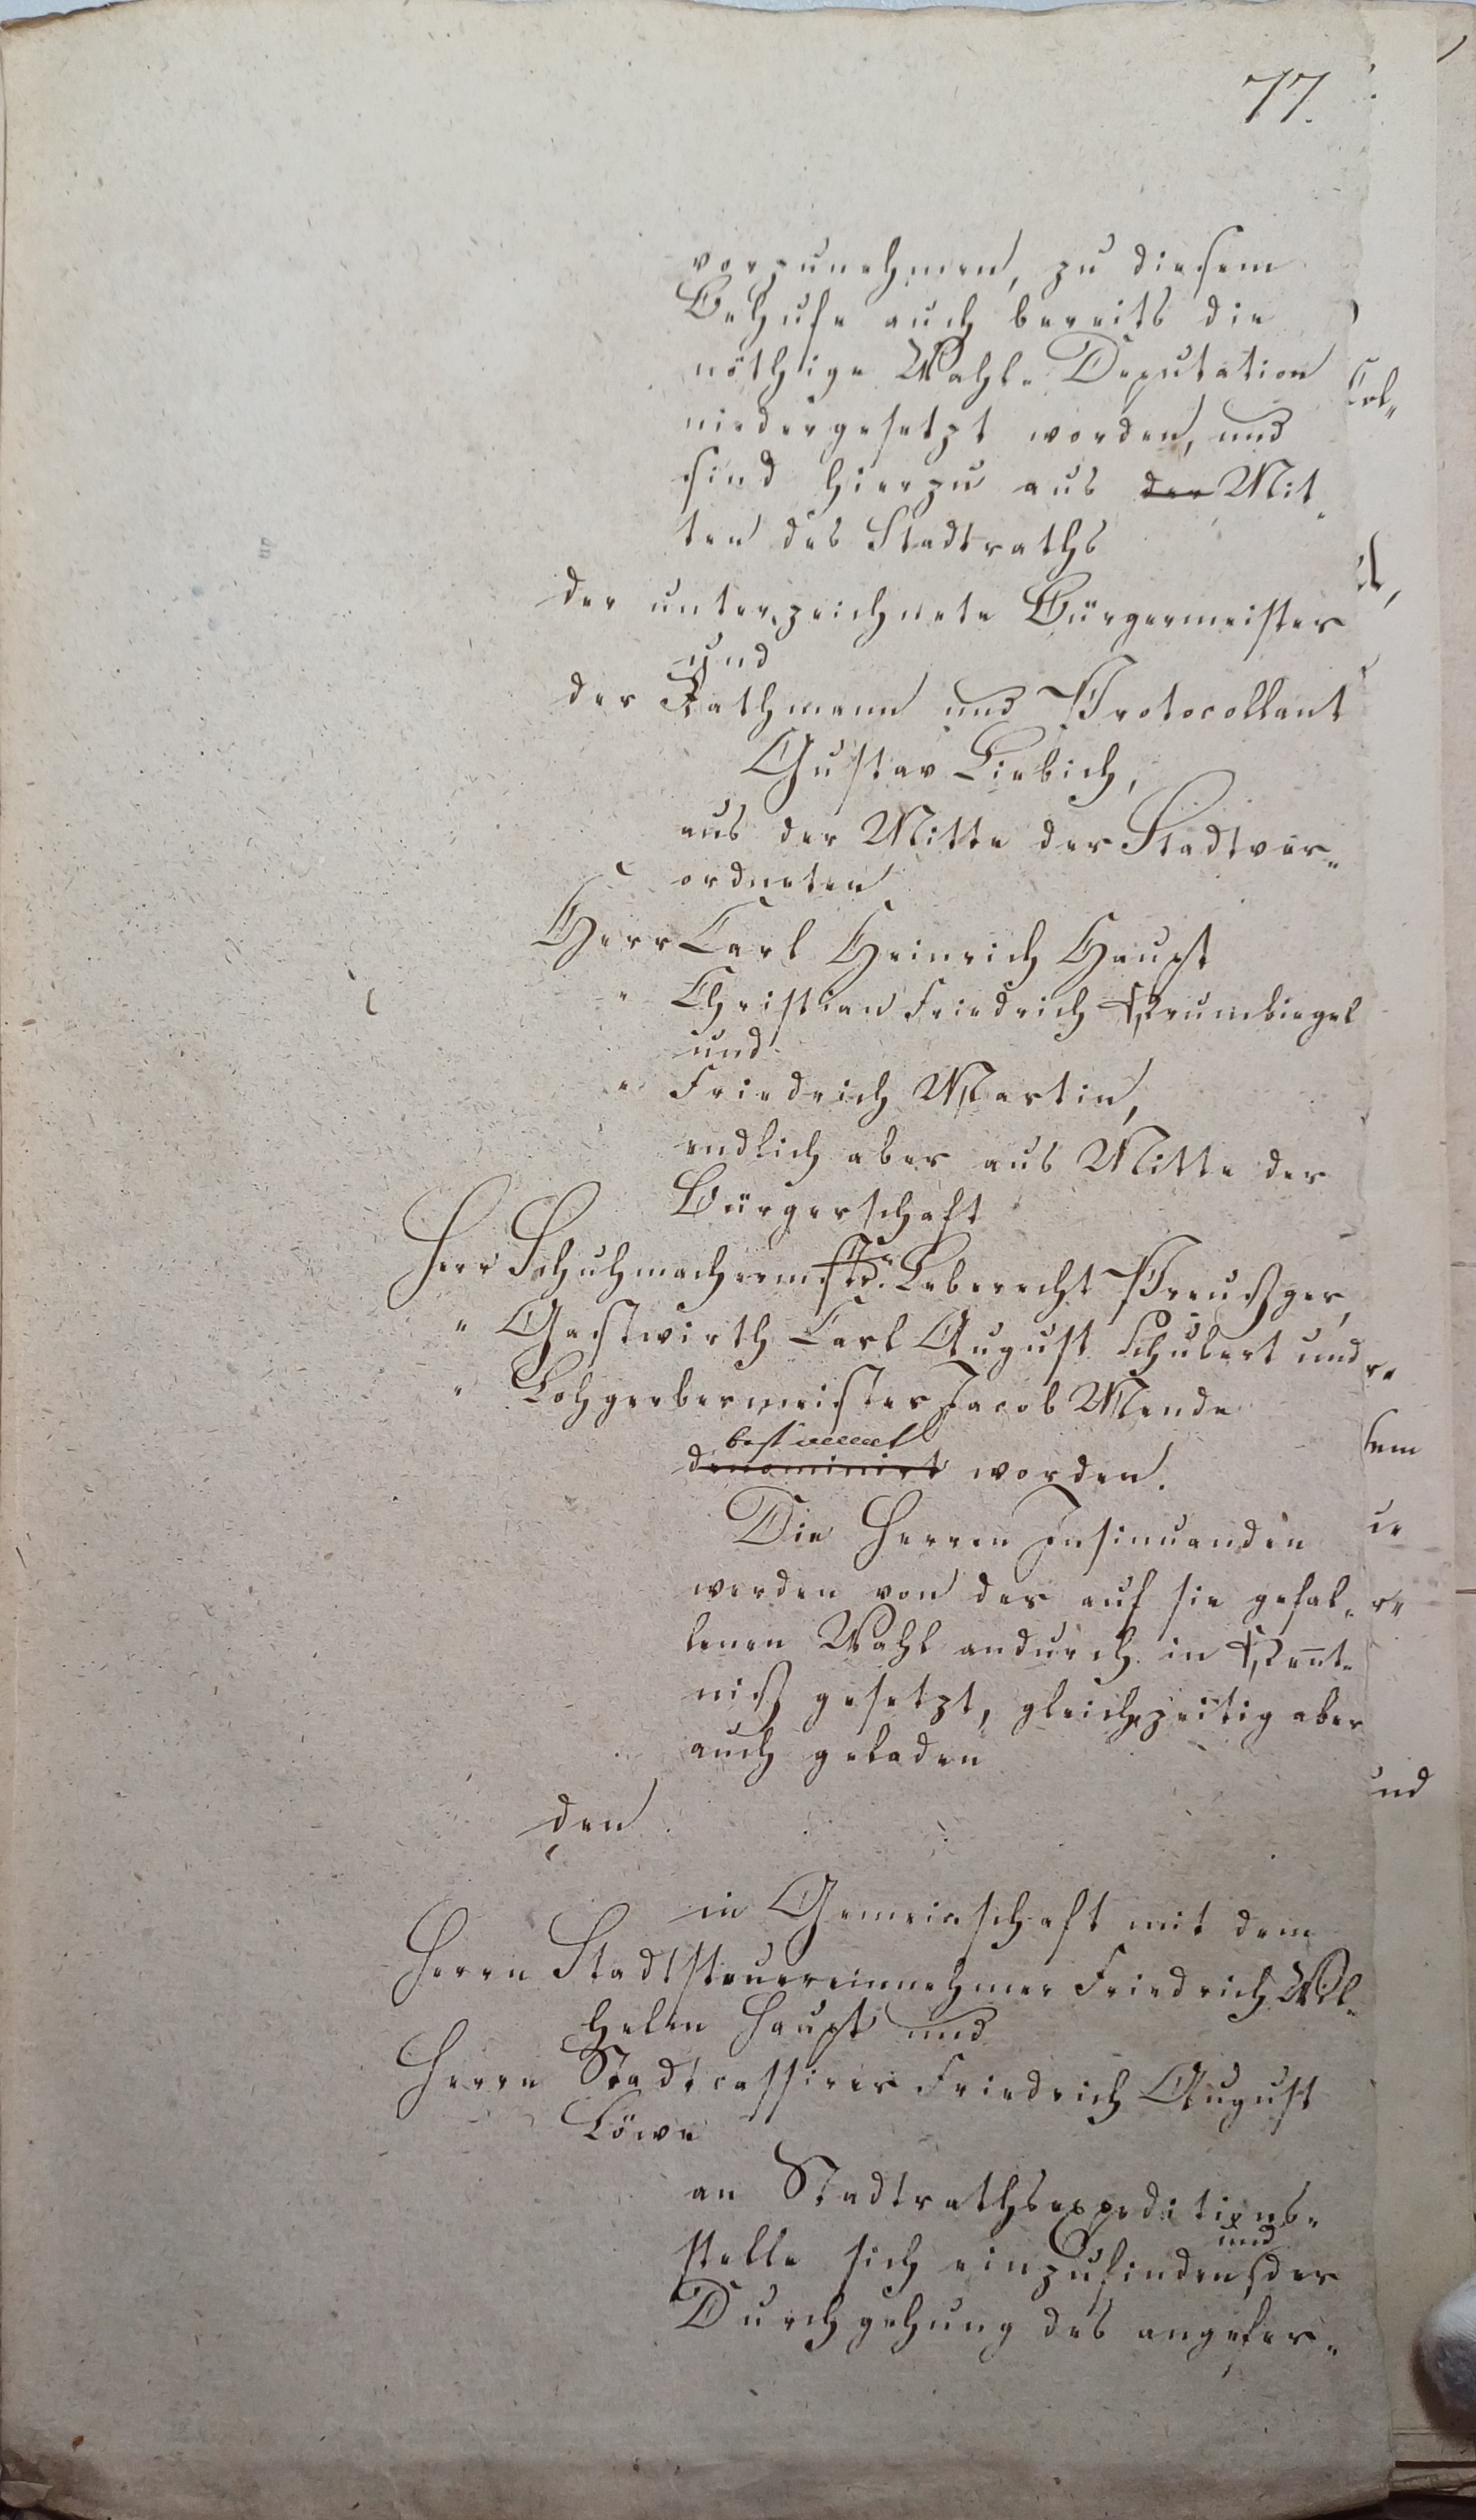 77.
vorzunehmen, zu diesem
Behufe auch bereits die
nöthige Wahl-Deputation
niedergesetzt worden, und
sind hierzu aus der Mit-
ten des Stadtraths
der unterzeichnete Bürgermeister
und
der Rathmann und Protocollant
Gustav Liebich,
aus der Mitte der Stadtver-
ordneten
Herr Carl Heinrich Haupt
" Christian Friedrich Krumbiegel
und
" Friedrich Martin,
endlich aber aus Mitte der
Bürgerschaft
Herr Schuhmachermstr. Leberecht Preußger,
" Gastwirth Carl August Schubert und
" Lohgerbermeister Jacob Mende
bestimmt
denominirt worden.
Die Herren Insinuanden
werden von der auf sie gefal-
lenen Wahl andurch in Kennt-
niß gesetzt, gleichzeitig aber
auch geladen
den
in Gemeinschaft mit dem
Herrn Stadtsteuereinnehmer Friedrich Wil-
helm Haupt und
Herrn Stadtcassirer Friedrich August
Löwe
an Stadtrathsexpeditions-
und
stelle sich einzufinden der
Durchgehung des angefer-